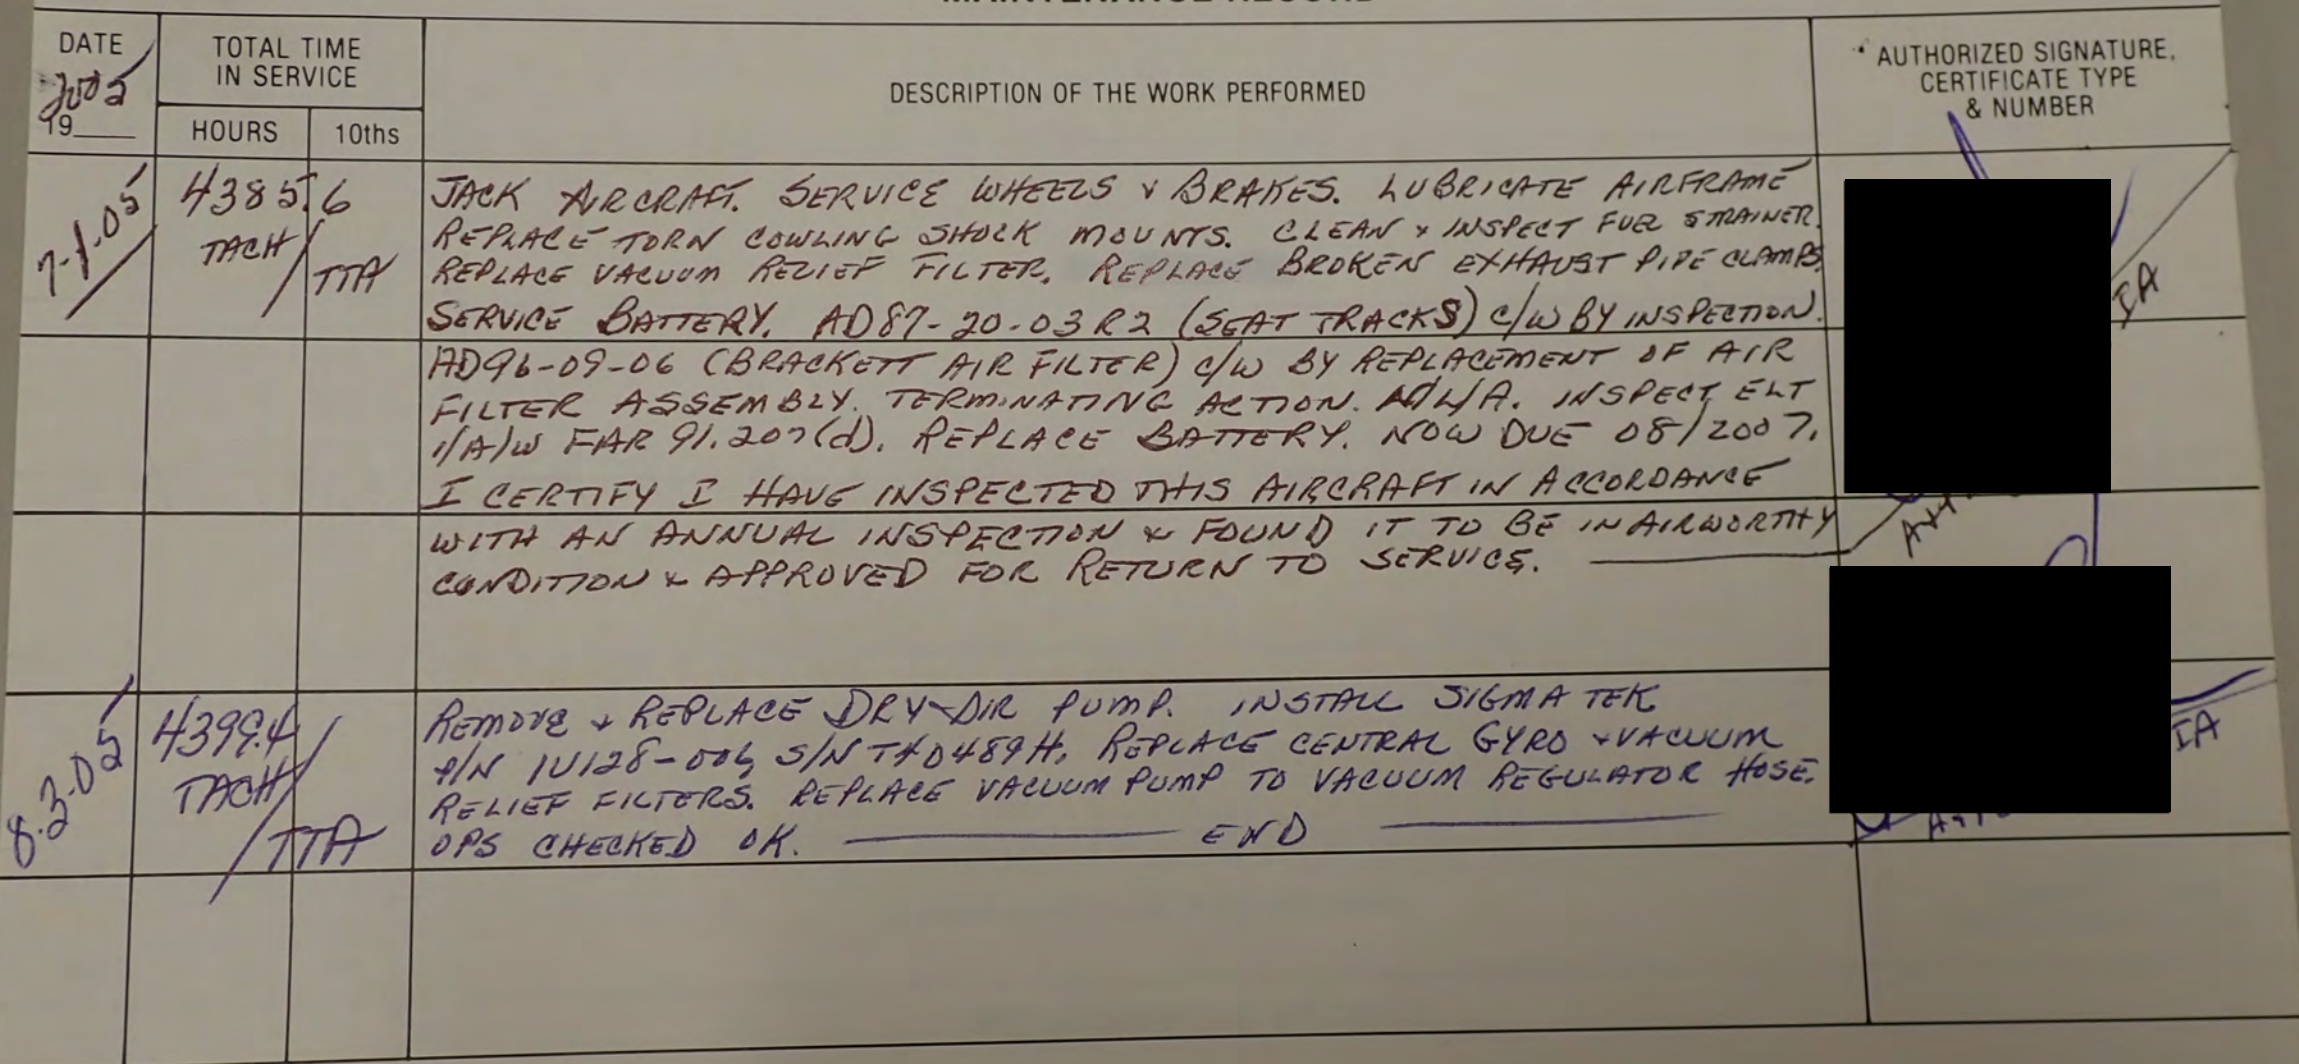 MAINTENANCE RECORD
DATE
2005
19
TOTAL TIME
IN SERVICE
HOURS
10ths
DESCRIPTION OF THE WORK PERFORMED
AUTHORIZED SIGNATURE,
CERTIFICATE TYPE
& NUMBER
7-1-05
4385.6
TACH / TTA
JACK AIRCRAFT. SERVICE WHEELS & BRAKES. LUBRICATE AIRFRAME
REPLACE TORN COWLING SHOCK MOUNTS. CLEAN & INSPECT FUEL STRAINER.
REPLACE VACUUM RELIEF FILTER. REPLACE BROKEN EXHAUST PIPE CLAMPS.
SERVICE BATTERY. AD87-20-03R2 (SEAT TRACKS) C/W BY INSPECTION.
AD96-09-06 (BRACKETT AIR FILTER) C/W BY REPLACEMENT OF AIR
FILTER ASSEMBLY. TERMINATING ACTION. INSPECT ELT
I/A/W FAR 91.207(d). REPLACE BATTERY. NOW DUE 08/2007.
I CERTIFY I HAVE INSPECTED THIS AIRCRAFT IN ACCORDANCE
WITH AN ANNUAL INSPECTION & FOUND IT TO BE IN AIRWORTHY
CONDITION & APPROVED FOR RETURN TO SERVICE.
IA
8-3-05
4399.4
TACH / TTA
REMOVE & REPLACE DRY AIR PUMP. INSTALL SIGMA TEK
P/N 1U128-006, S/N REPLACE CENTRAL GYRO & VACUUM
RELIEF FILTERS. REPLACE VACUUM PUMP TO VACUUM REGULATOR HOSE.
OPS CHECKED OK. END
IA